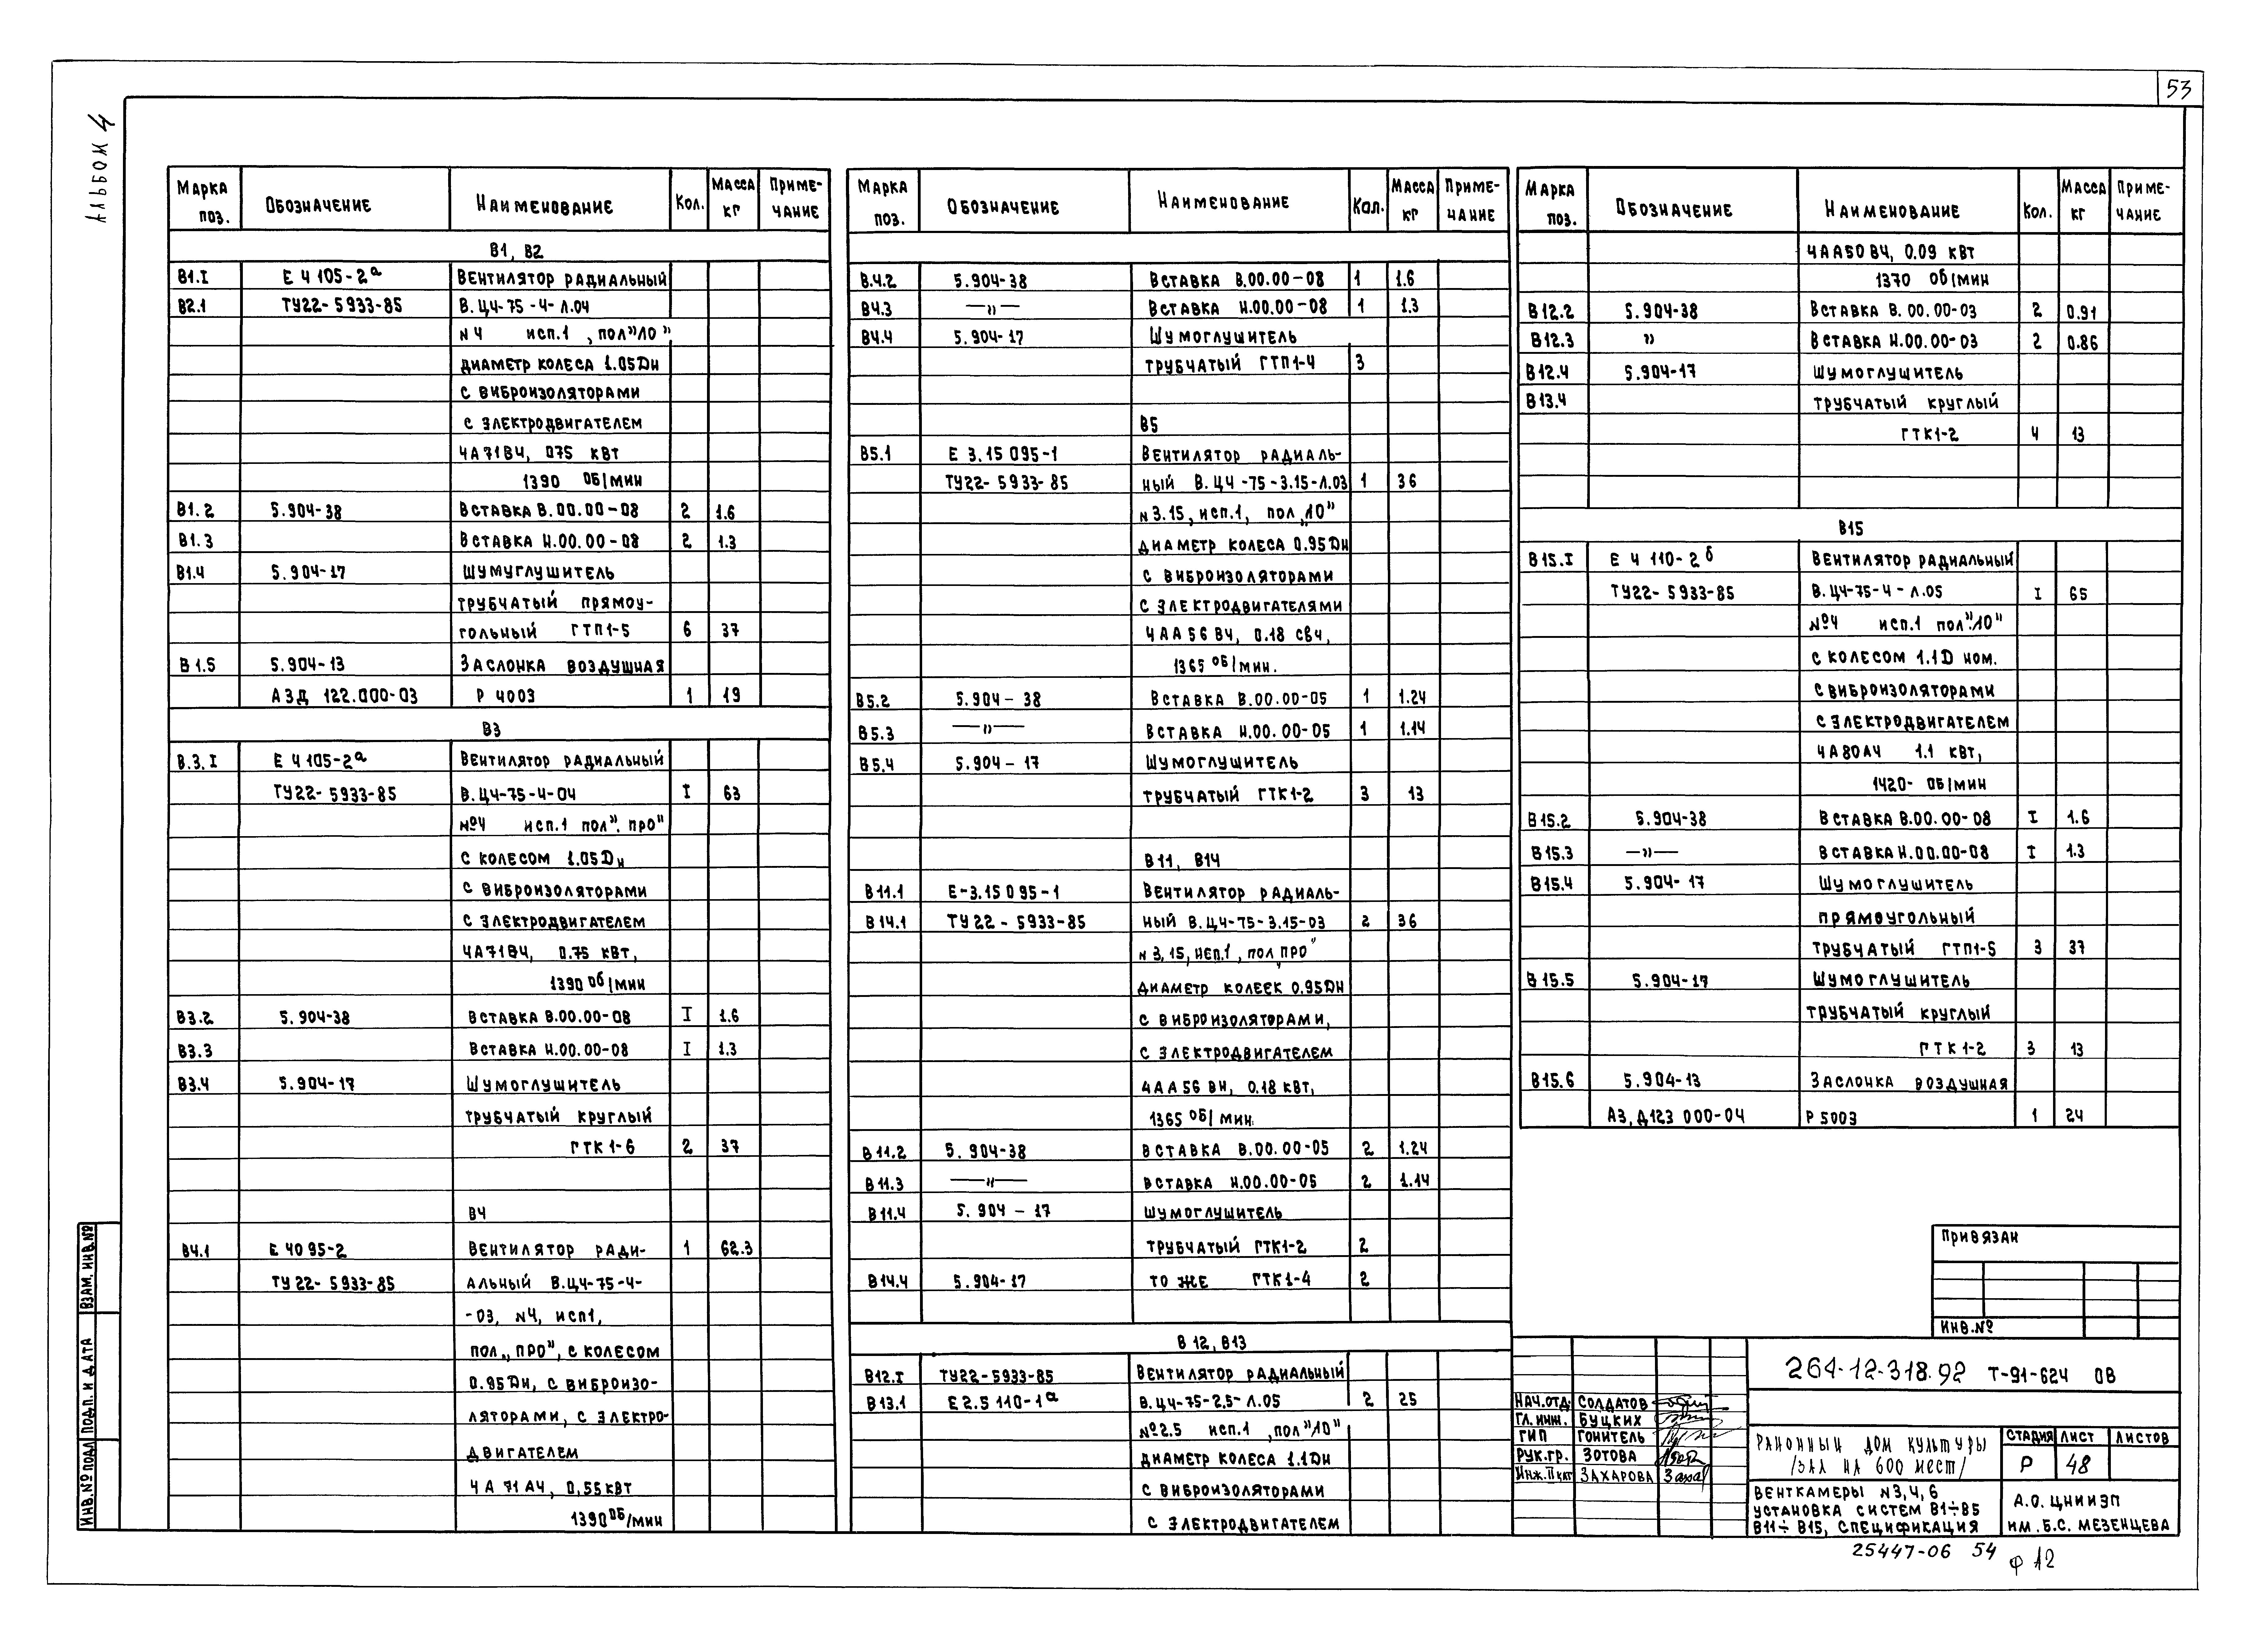 53
Альбом 4
Марка поз. Обозначение Наименование Кол. Масса кг Приме-чание
В1, В2
В1.I Е 4 105-2а Вентилятор радиальный
В2.1 ТУ22-5933-85 В.Ц4-75-4-Л.04
N4 исп.1 , пол"Л0"
диаметр колеса 1.05Dн
с виброизоляторами
с электродвигателем
4А71В4, 075 квт
1390 об/мин
В1.2 5.904-38 Вставка В.00.00-08 2 1.6
В1.3 Вставка Н.00.00-08 2 1.3
В1.4 5.904-17 Шумуглушитель
трубчатый прямоу-
гольный ГТП1-5 6 37
В1.5 5.904-13 Заслонка воздушная
АЗД 122.000-03 Р 4003 1 19
В3
В.3.I Е 4 105-2а Вентилятор радиальный
ТУ22-5933-85 В.Ц4-75-4-04 I 63
№4 исп.1 пол". про"
с колесом 1.05Dн
с виброизоляторами
с электродвигателем
4А71В4, 0.75 квт,
1390 об/мин
В3.2 5.904-38 Вставка В.00.00-08 I 1.6
В3.3 Вставка Н.00.00-08 I 1.3
В3.4 5.904-17 Шумоглушитель
трубчатый круглый
ГТК1-6 2 37
В4
В4.1 Е 4095-2 Вентилятор ради- 1 62.3
ТУ22-5933-85 альный В.Ц4-75-4-
-03, N4, исп1,
пол„ПРО", с колесом
0.95Dн, с виброизо-
ляторами, с электро-
двигателем
4А71А4, 0,55квт
1390об/мин
Марка поз. Обозначение Наименование Кол. Масса кг Приме-чание
В.4.2 5.904-38 Вставка В.00.00-08 1 1.6
В4.3 —"— Вставка Н.00.00-08 1 1.3
В4.4 5.904-17 Шумоглушитель
трубчатый ГТП1-4 3
В5
В5.1 Е 3.15 095-1 Вентилятор радиаль-
ТУ22-5933-85 ный В.Ц4-75-3.15-Л.03 1 36
N3.15, исп.1, пол„Л0"
диаметр колеса 0.95Dн
с виброизоляторами
с электродвигателями
4АА56В4, 0.18 свч,
1365 об/мин.
В5.2 5.904-38 Вставка В.00.00-05 1 1.24
В5.3 —"— Вставка Н.00.00-05 1 1.14
В5.4 5.904-17 Шумоглушитель
трубчатый ГТК1-2 3 13
В11, В14
В11.1 Е-3.15 095-1 Вентилятор радиаль-
В14.1 ТУ22-5933-85 ный В.Ц4-75-3.15-03 2 36
N3,15, исп.1, пол„ПРО"
диаметр колеек 0.95Dн
с виброизоляторами,
с электродвигателем
4АА56ВН, 0.18 квт,
1365 об/мин.
В11.2 5.904-38 Вставка В.00.00-05 2 1.24
В11.3 —"— Вставка Н.00.00-05 2 1.14
В11.4 5.904-17 Шумоглушитель
трубчатый ГТК1-2 2
В14.4 5.904-17 то же ГТК1-4 2
В12, В13
В12.I ТУ22-5933-85 Вентилятор радиальный
В13.1 Е2.5 110-1а В.Ц4-75-2,5-Л.05 2 25
№2.5 исп.1 , пол"Л0"
диаметр колеса 1.1Dн
с виброизоляторами
с электродвигателем
Марка поз. Обозначение Наименование Кол. Масса кг Приме-чание
4АА50В4, 0.09 квт
1370 об/мин
В12.2 5.904-38 Вставка В.00.00-03 2 0.91
В12.3 " Вставка Н.00.00-03 2 0.86
В12.4 5.904-17 Шумоглушитель
В13.4 трубчатый круглый
ГТК1-2 4 13
В15
В15.I Е 4 110-2б Вентилятор радиальный
ТУ22-5933-85 В.Ц4-75-4-Л.05 I 65
№4 исп.1 пол".Л0"
с колесом 1.1D ном.
с виброизоляторами
с электродвигателем
4А80А4 1.1 квт,
1420- об/мин
В15.2 5.904-38 Вставка В.00.00-08 I 1.6
В15.3 —"— Вставка Н.00.00-08 I 1.3
В15.4 5.904-17 Шумоглушитель
прямоугольный
трубчатый ГТП1-5 3 37
В15.5 5.904-17 Шумоглушитель
трубчатый круглый
ГТК1-2 3 13
В15.6 5.904-13 Заслонка воздушная
АЗ,Д123 000-04 Р 5003 1 24
Привязан
Инв.№
264-12-318.92 Т-91-624 ОВ
Нач.отд. Солдатов
Гл.инж. Буцких
ГИП Гонитель
Рук.гр. Зотова
Инж.IIкат Захарова
Районный дом культуры
/зал на 600 мест/
Стадия Лист Листов
Р 48
Венткамеры N3,4,6
установка систем В1÷В5
В11÷В15, спецификация
А.О. ЦНИИЭП
им. Б.С. Мезенцева
25447-06 54
ф А2
Взам. инв.№
Подп. и дата
Инв.№ подл